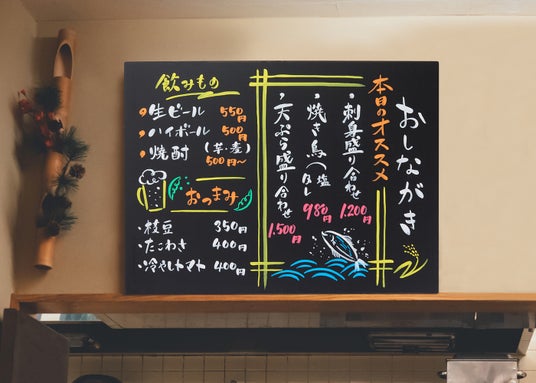 おしながき
本日のオススメ
・刺身盛り合わせ
1.200円
・焼き鳥(塩
980円
・天ぷら盛り合わせ
1.500円
飲みもの
生ビール 550円
ハイボール 500円
焼酎(芋・麦) 500円〜
おつまみ
・枝豆 350円
・たこわさ 400円
・冷やしトマト 400円